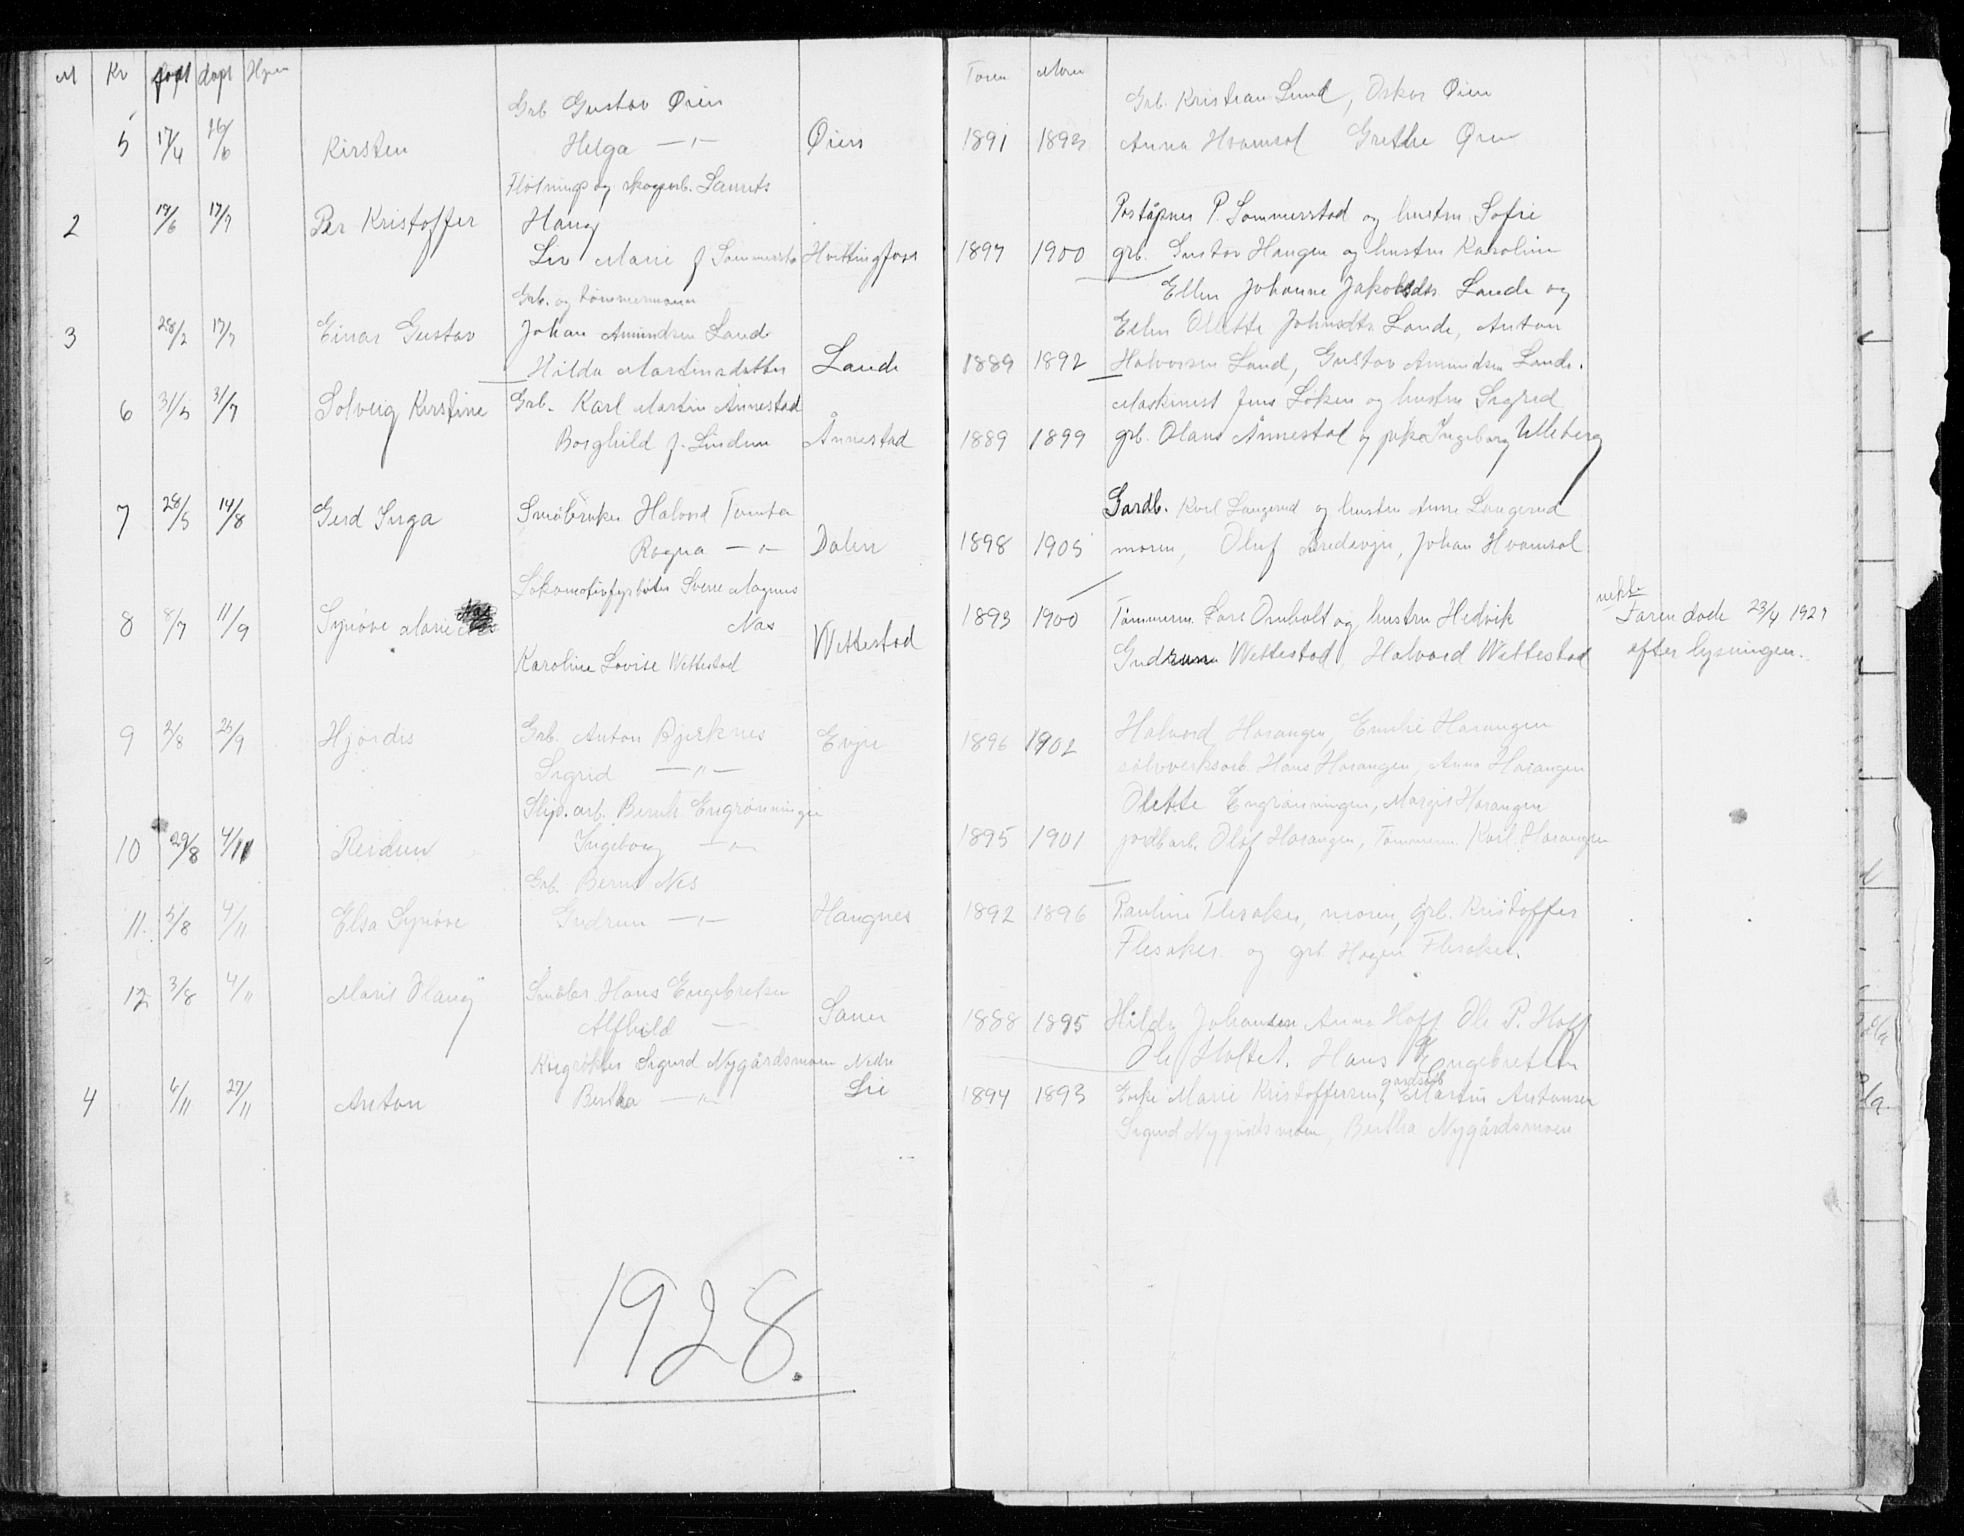 M Kv født døpt Hjem Faren Moren
Grb Gustav Øien Grb. Kristian Lund, Oskar Øien
5 17/4 26/6 Kirsten Helga —"— Øien 1891 1893 Anna Hvamsal Grethe Øien
Fløtnings og skogsarb. Laurits
2 19/6 17/7 Per Kristoffer Haug Poståpner P. Sommerstad og hustru Sofie
Liv Marie f Sommersta Hvittingfoss 1897 1900 grb. Gustav Haugen og hustru Karoline
Grb. og tømmermann Ellen Johanne Jakobsdtr. Lande og
3 28/2 17/7 Einar Gustav Johan Amundsen Lande Ellen Olette Johnsdtr. Lande, Anton
Hilda Martinsdatter Lande 1889 1892 Halvorsen Lande, Gustav Amundsen Lande.
6 31/5 31/7 Solveig Kirstine Grb. Karl Martin Ånnestad Maskinist Jens Løken og hustru Sigrid
Borghild f. Lindrum Ånnestad 1889 1899 grb. Olaus Ånnestad og pike Ingeborg Ulleberg
7 28/5 14/8 Gerd Inga Småbruker Halvord Tomta Gardb. Karl Langerud og hustru Anne Langerud
Ragna —"— Dalen 1898 1905 moren, Oluf Bredevju, Johan Hvamsal
Lokomotivfyrbøter Sverre Magnus
8 8/7 11/9 Synøve Marie Nas 1893 1900 Tømmerm. Lars Omholt og hustru Hedvik Faren døde 23/4 1927
Karoline Lovise Wettestad Wettestad Gudrun Wettestad, Halvord Wettestad efter lysningen.
9 2/8 25/9 Hjørdis Grb. Anton Bjerknes Evju 1896 1902 Halvord Horangen, Emilie Horangen
Sigrid —"— sølvverksarb. Hans Horangen, Anna Horangen
Slip. arb. Bernt Engrønningen Olette Engrønningen, Margit Horangen
10 29/8 4/11 Reidun Ingeborg —"— 1895 1901 jordbarb. Olaf Horangen, Tømmerm. Karl Horangen
Grb. Bernt Nes
11. 5/8 4/11 Elsa Synøve Gudrun —"— Haugnes 1892 1896 Pauline Flesaker, moren, grb. Kristoffer
Flesaker og grb Hagen Flesaker.
12 3/8 4/11 Marit Olaug Småbr. Hans Engebretsen
Alfhild — Saue 1888 1895 Hilda Johansen Anna Hoff Ole P. Hoff
Ole Holtet. Hans Engebretsen
Krøgrøkter Sigurd Nygårdsmoen Nedre gardsarb
4 6/11 27/11 Anton Bertha —"— Lie 1894 1893 Enke Marie Kristoffersen, Martin Antonsen
Sigurd Nygårdsmoen, Bertha Nygårdsmoen
1928.